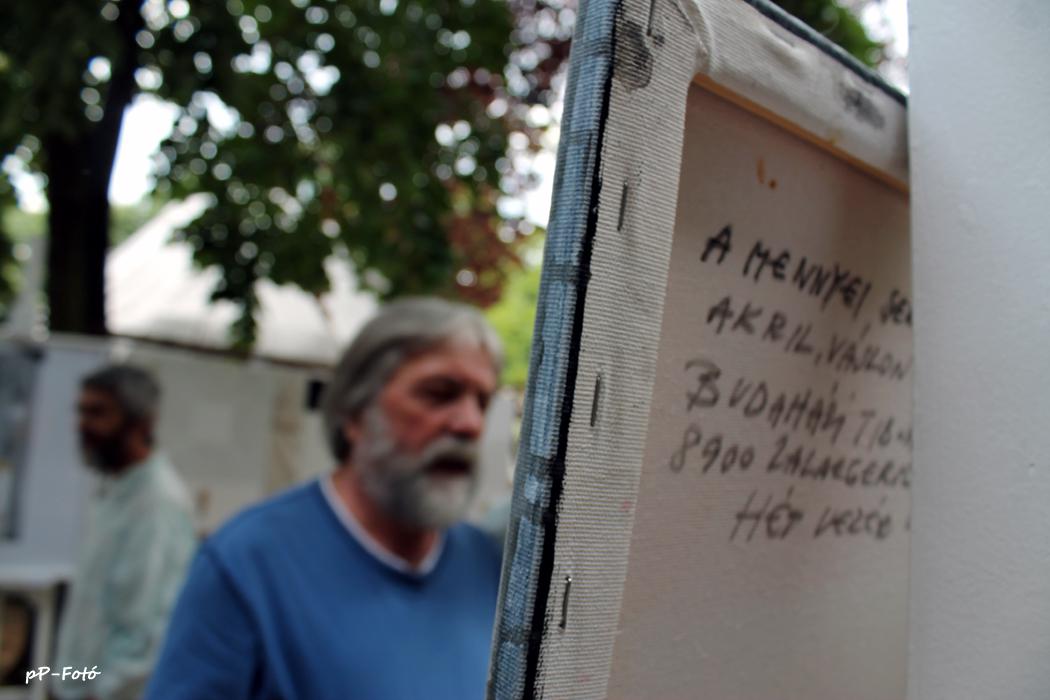 A MENNYEI SE
AKRIL, VÁSZON
BUDAHÁZI TIB
8900 ZALAEGERS
HÉT VEZÉR
pP-Fotó